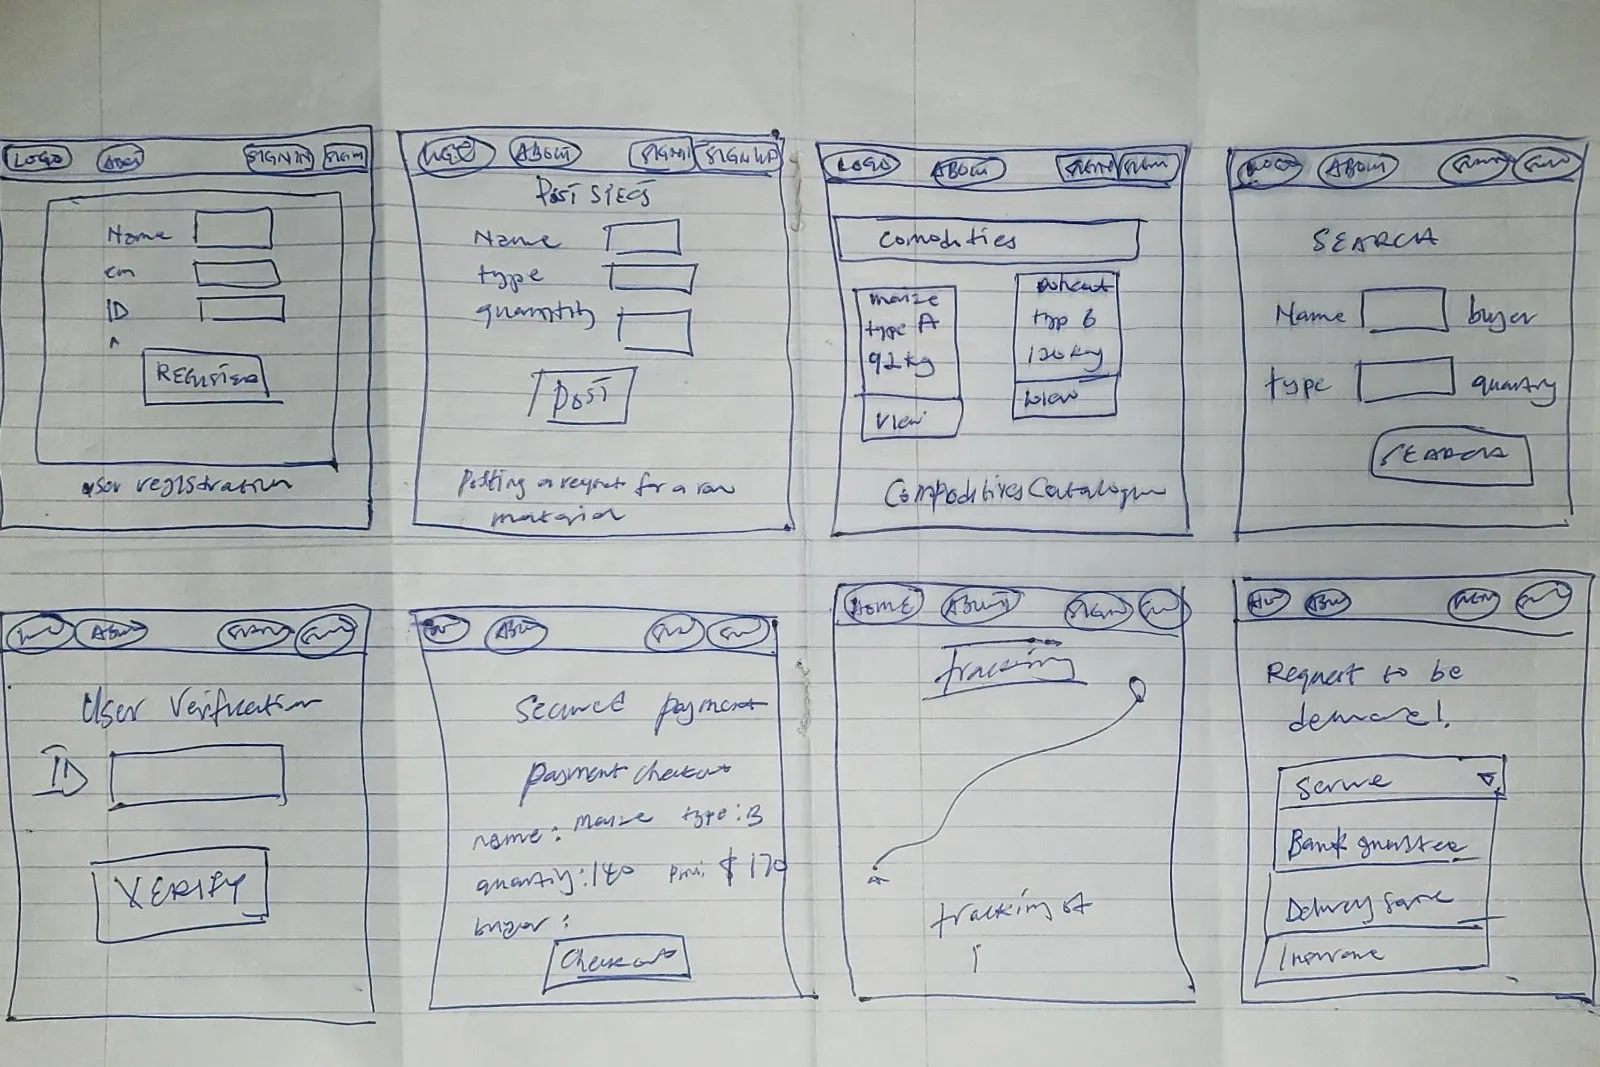 LOGO ABOUT SIGNIN SIGN
Name
em
ID
REGISTER
user registration
LOGO ABOUT SIGNIN SIGNUP
POST SPECS
Name
type
quantity
POST
Posting a request for a raw
material
LOGO ABOUT SIGNIN SIGN
Comodities
maize
type A
92kg
view
typ B
120kg
view
Commodities Catalogue
LOGO ABOUT
SEARCH
Name buyer
type quantity
SEARCH
User Verification
ID
VERIFY
Secured payment
payment checkout
name: maize type: B
quantity: 140 $170
buyer:
Checkout
HOME ABOUT SIGN
tracking
tracking of
Request to be
Service
Bank
Delivery
Insurance